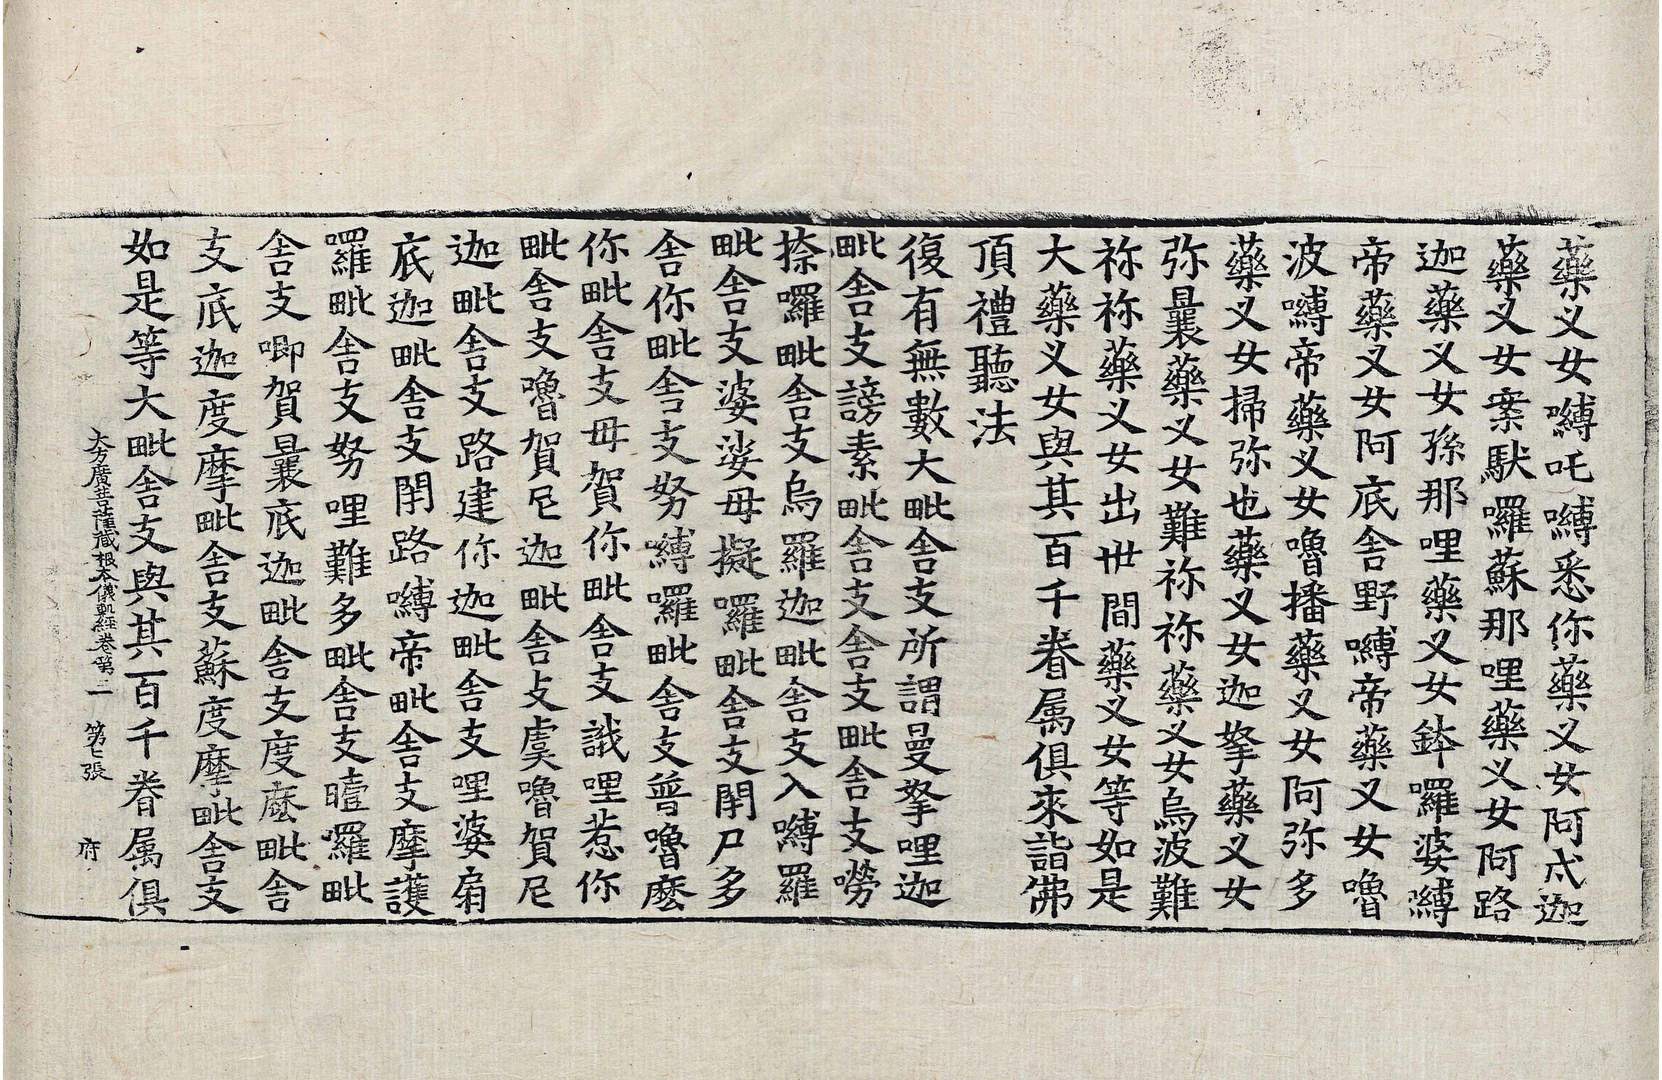 藥叉女嚩吒嚩悉你藥叉女阿忒迦
藥叉女案馱囉蘇那哩藥叉女阿路
迦藥叉女孫那哩藥叉女鉢囉婆嚩
帝藥叉女阿底舍野嚩帝藥叉女嚕
波嚩帝藥叉女嚕播藥叉女阿弥多
藥叉女掃弥也藥叉女迦拏藥叉女
弥曩藥叉女難祢祢藥叉女烏波難
祢祢藥叉女出世間藥叉女等如是
大藥叉女與其百千眷属俱來詣佛
頂禮聽法
復有無數大毗舍支所謂曼拏哩迦
毗舍支謗素毗舍支舍支毗舍支嘮
捺囉毗舍支烏羅迦毗舍支入嚩羅
毗舍支婆娑毋擬羅毗舍支閉尸多
舍你毗舍支努嚩羅毗舍支普嚕麽
你毗舍支毋賀你毗舍支誐哩惹你
毗舍支嚕賀尼迦毗舍支虞嚕賀尼
迦毗舍支路建你迦毗舍支哩婆扇
底迦毗舍支閉路嚩帝毗舍支摩護
羅毗舍支努哩難多毗舍支曀羅毗
舍支唧賀曩底迦毗舍支度麽毗舍
支底迦度摩毗舍支蘇度摩毗舍支
如是等大毗舍支與其百千眷属俱
大方廣菩薩藏根本儀軌經卷第二 第七張 府